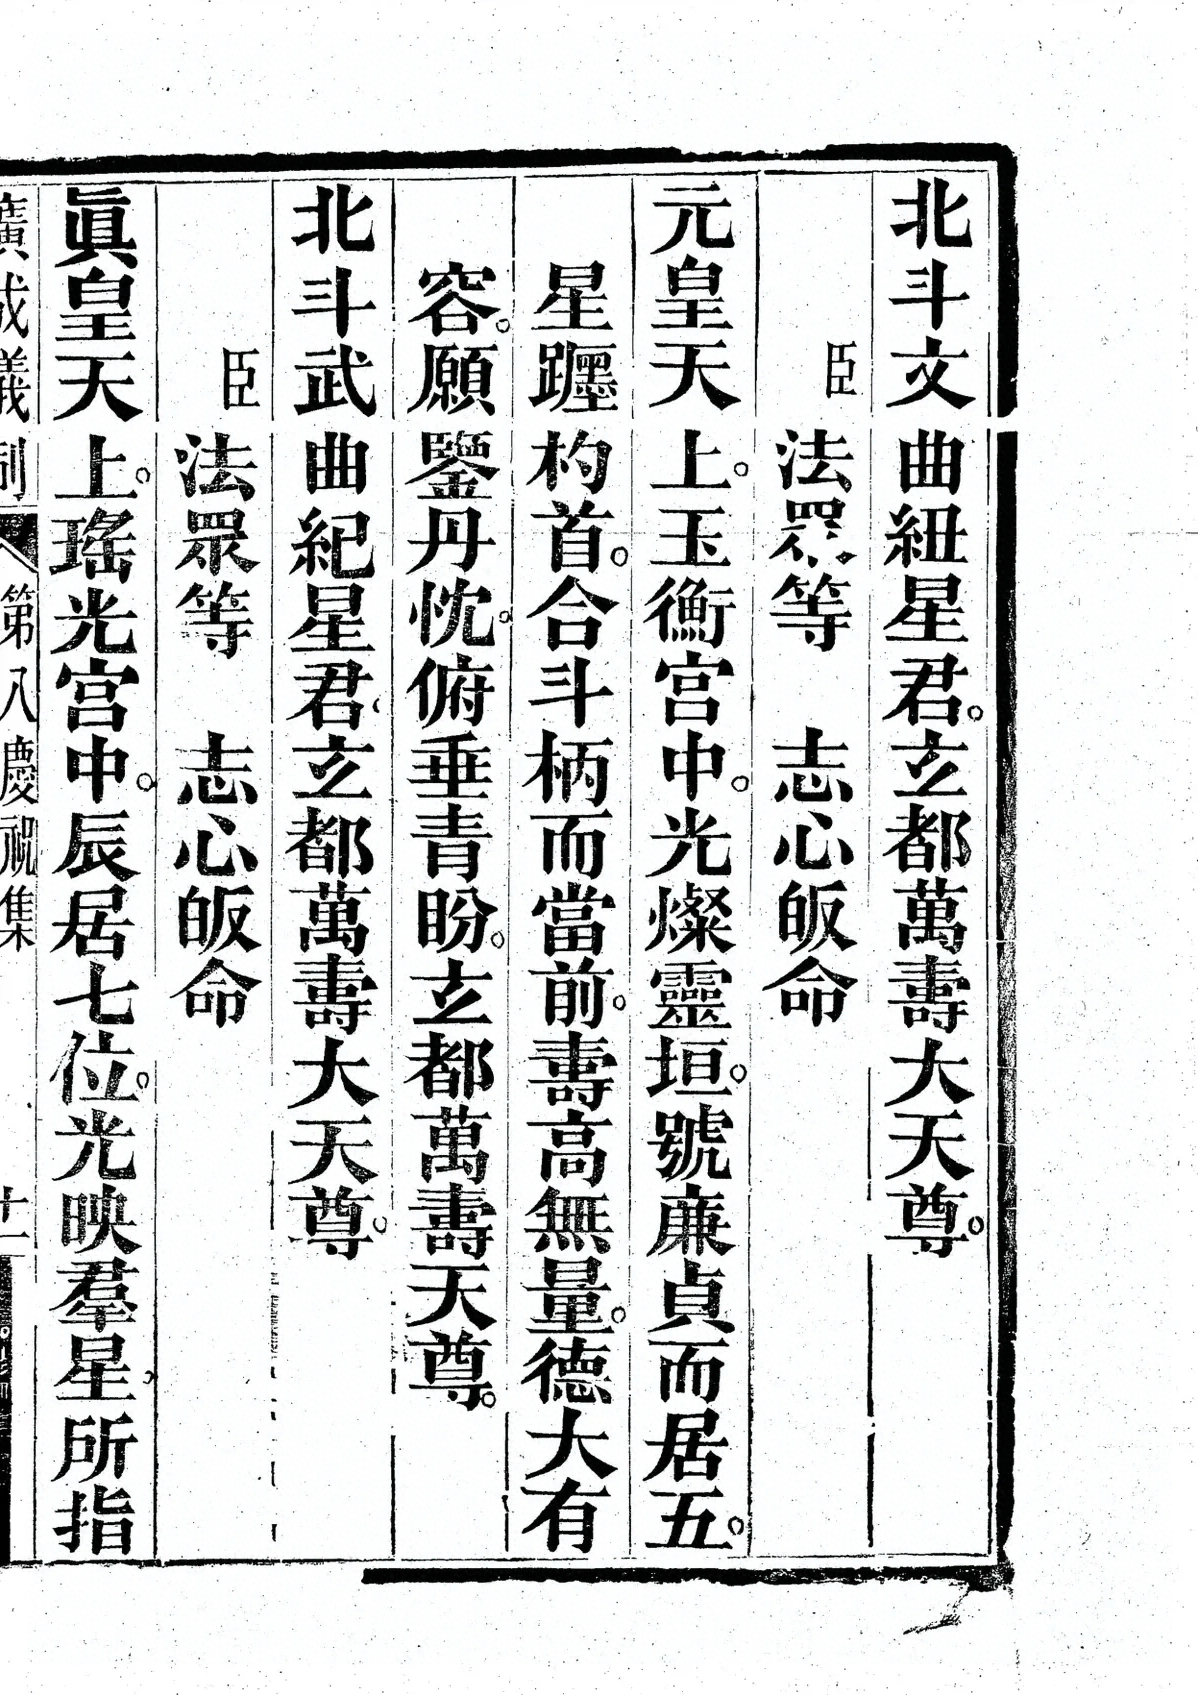 北斗文曲紐星君。玄都萬壽大天尊。
臣法眾等　志心皈命
元皇天上。玉衡宮中。光燦靈垣。號廉貞而居五。
星躔杓首。合斗柄而當前。壽高無量。德大有
容。願鑒丹忱。俯垂青盼。玄都萬壽天尊。
北斗武曲紀星君。玄都萬壽大天尊。
臣法眾等　志心皈命
眞皇天上。瑤光宮中。辰居七位。光映羣星。所指
廣成義制　第八慶祝集　十一